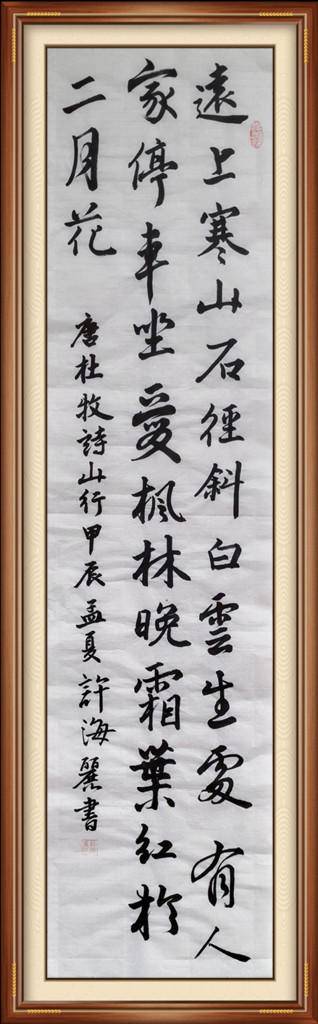 遠上寒山石徑斜白雲生處有人
家停車坐愛楓林晚霜葉紅於
二月花
唐杜牧詩山行甲辰孟夏許海麗書